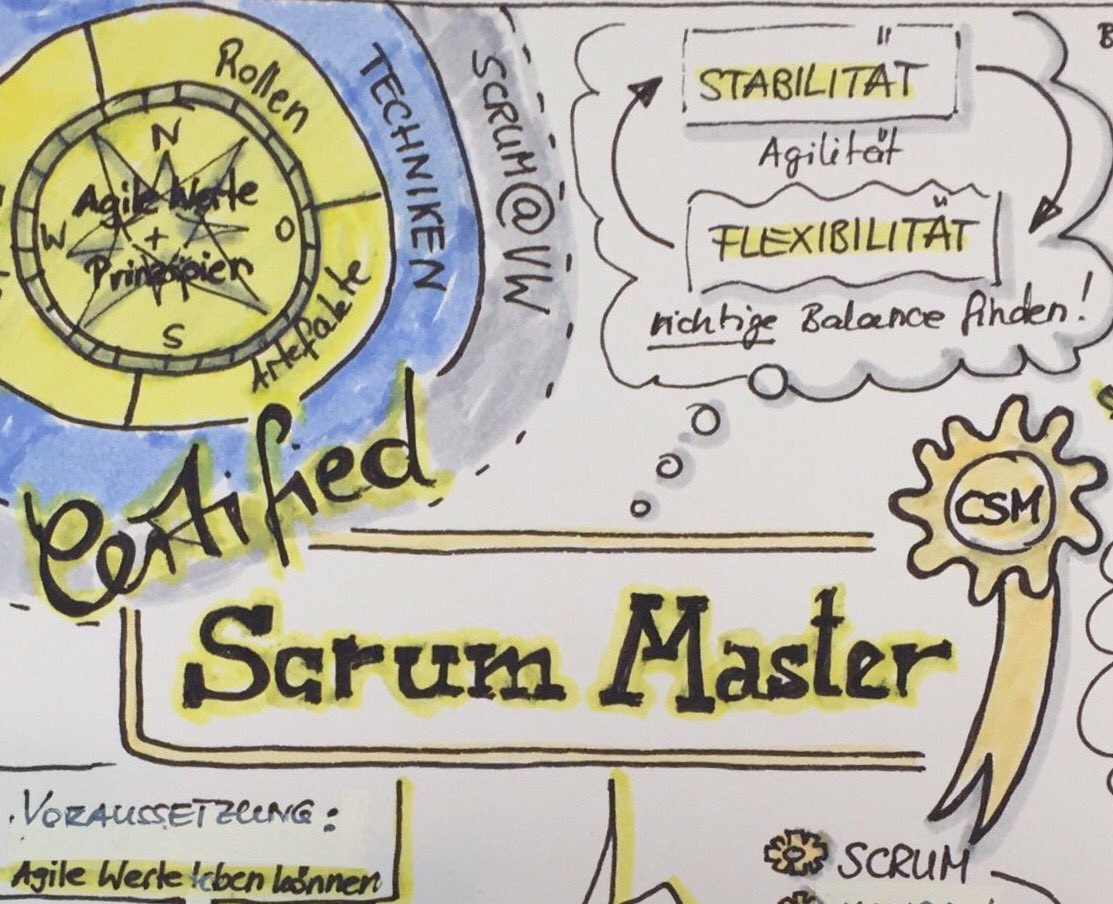 Rollen
TECHNIKEN
SCRUM@VW
N
Agile Werte
W + O
Prinzipien
S
Artefakte
STABILITÄT
Agilität
FLEXIBILITÄT
richtige Balance finden!
Certified
CSM
Scrum Master
VORAUSSETZUNG:
Agile Werte leben können
SCRUM